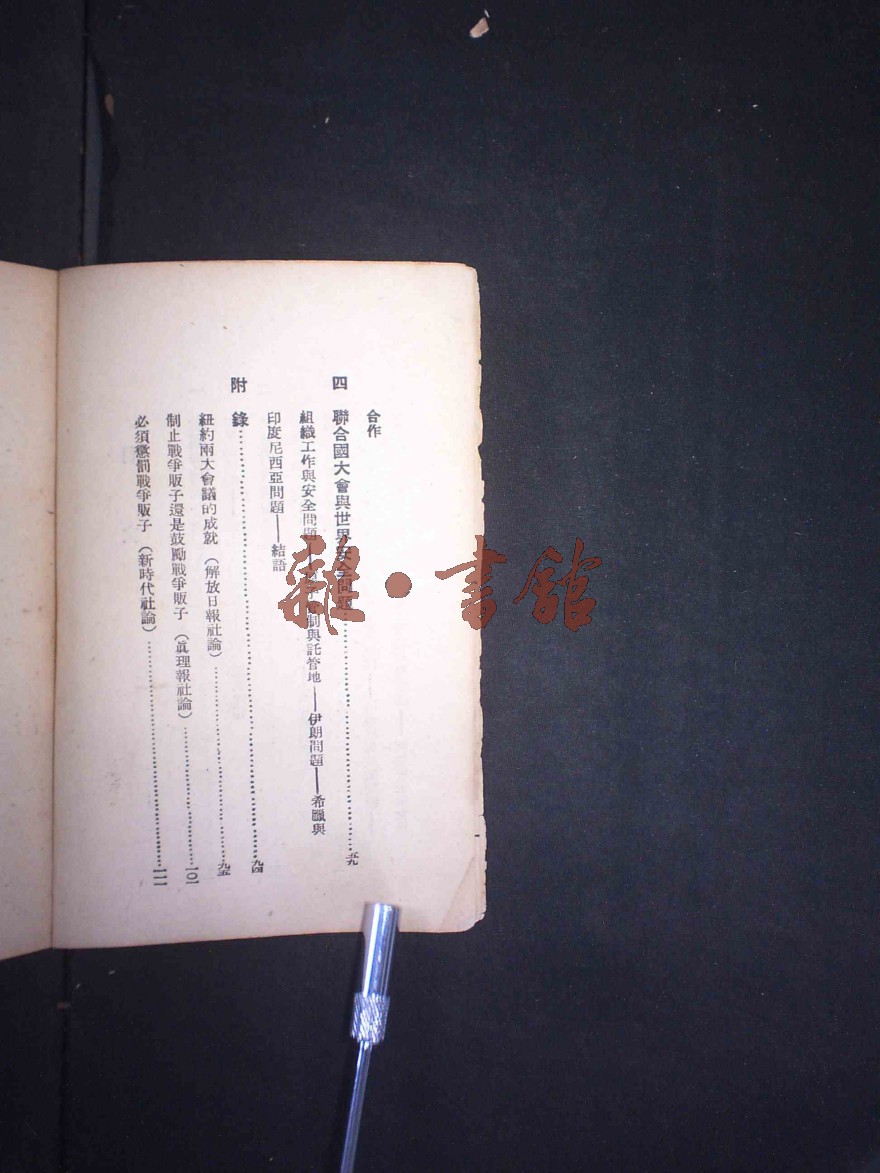 合作
四 聯合國大會與世界安全問題……五九
組織工作與安全問題——制與託管地——伊朗問題——希臘與
印度尼西亞問題——結語
附錄……九四
紐約兩大會議的成就（解放日報社論）……九五
制止戰爭販子還是鼓勵戰爭販子（眞理報社論）……一〇一
必須懲罰戰爭販子（新時代社論）……一一一
雜·書館